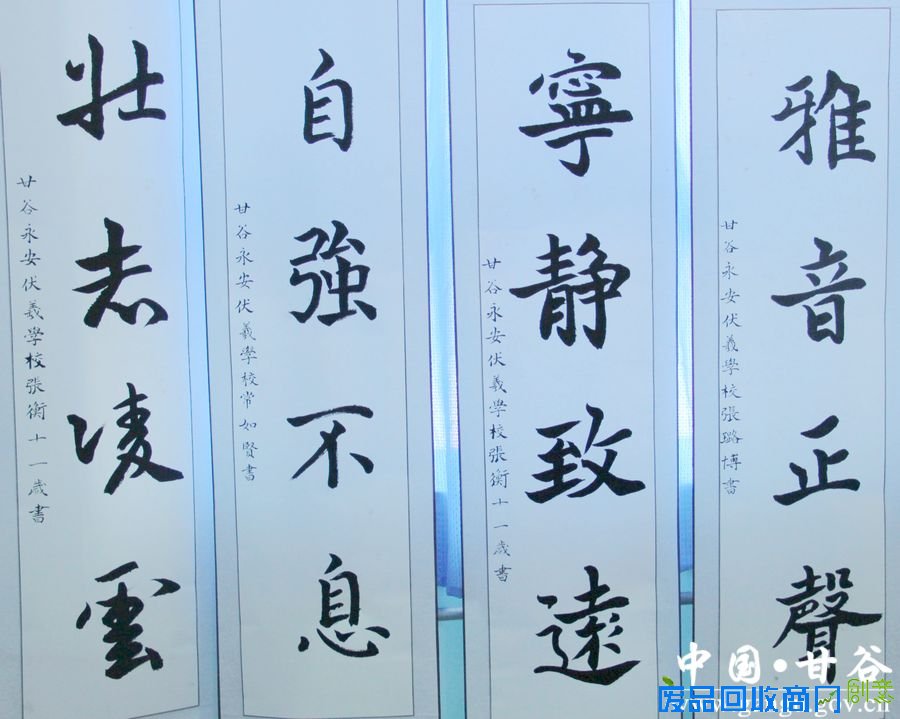 雅音正聲
甘谷永安伏羲學校張璐博書
寧靜致遠
甘谷永安伏羲學校張衡十一歲書
自強不息
甘谷永安伏羲學校常如賢書
壯志凌雲
甘谷永安伏羲學校張衡十一歲書
中国·甘谷
废品回收商厂
创意